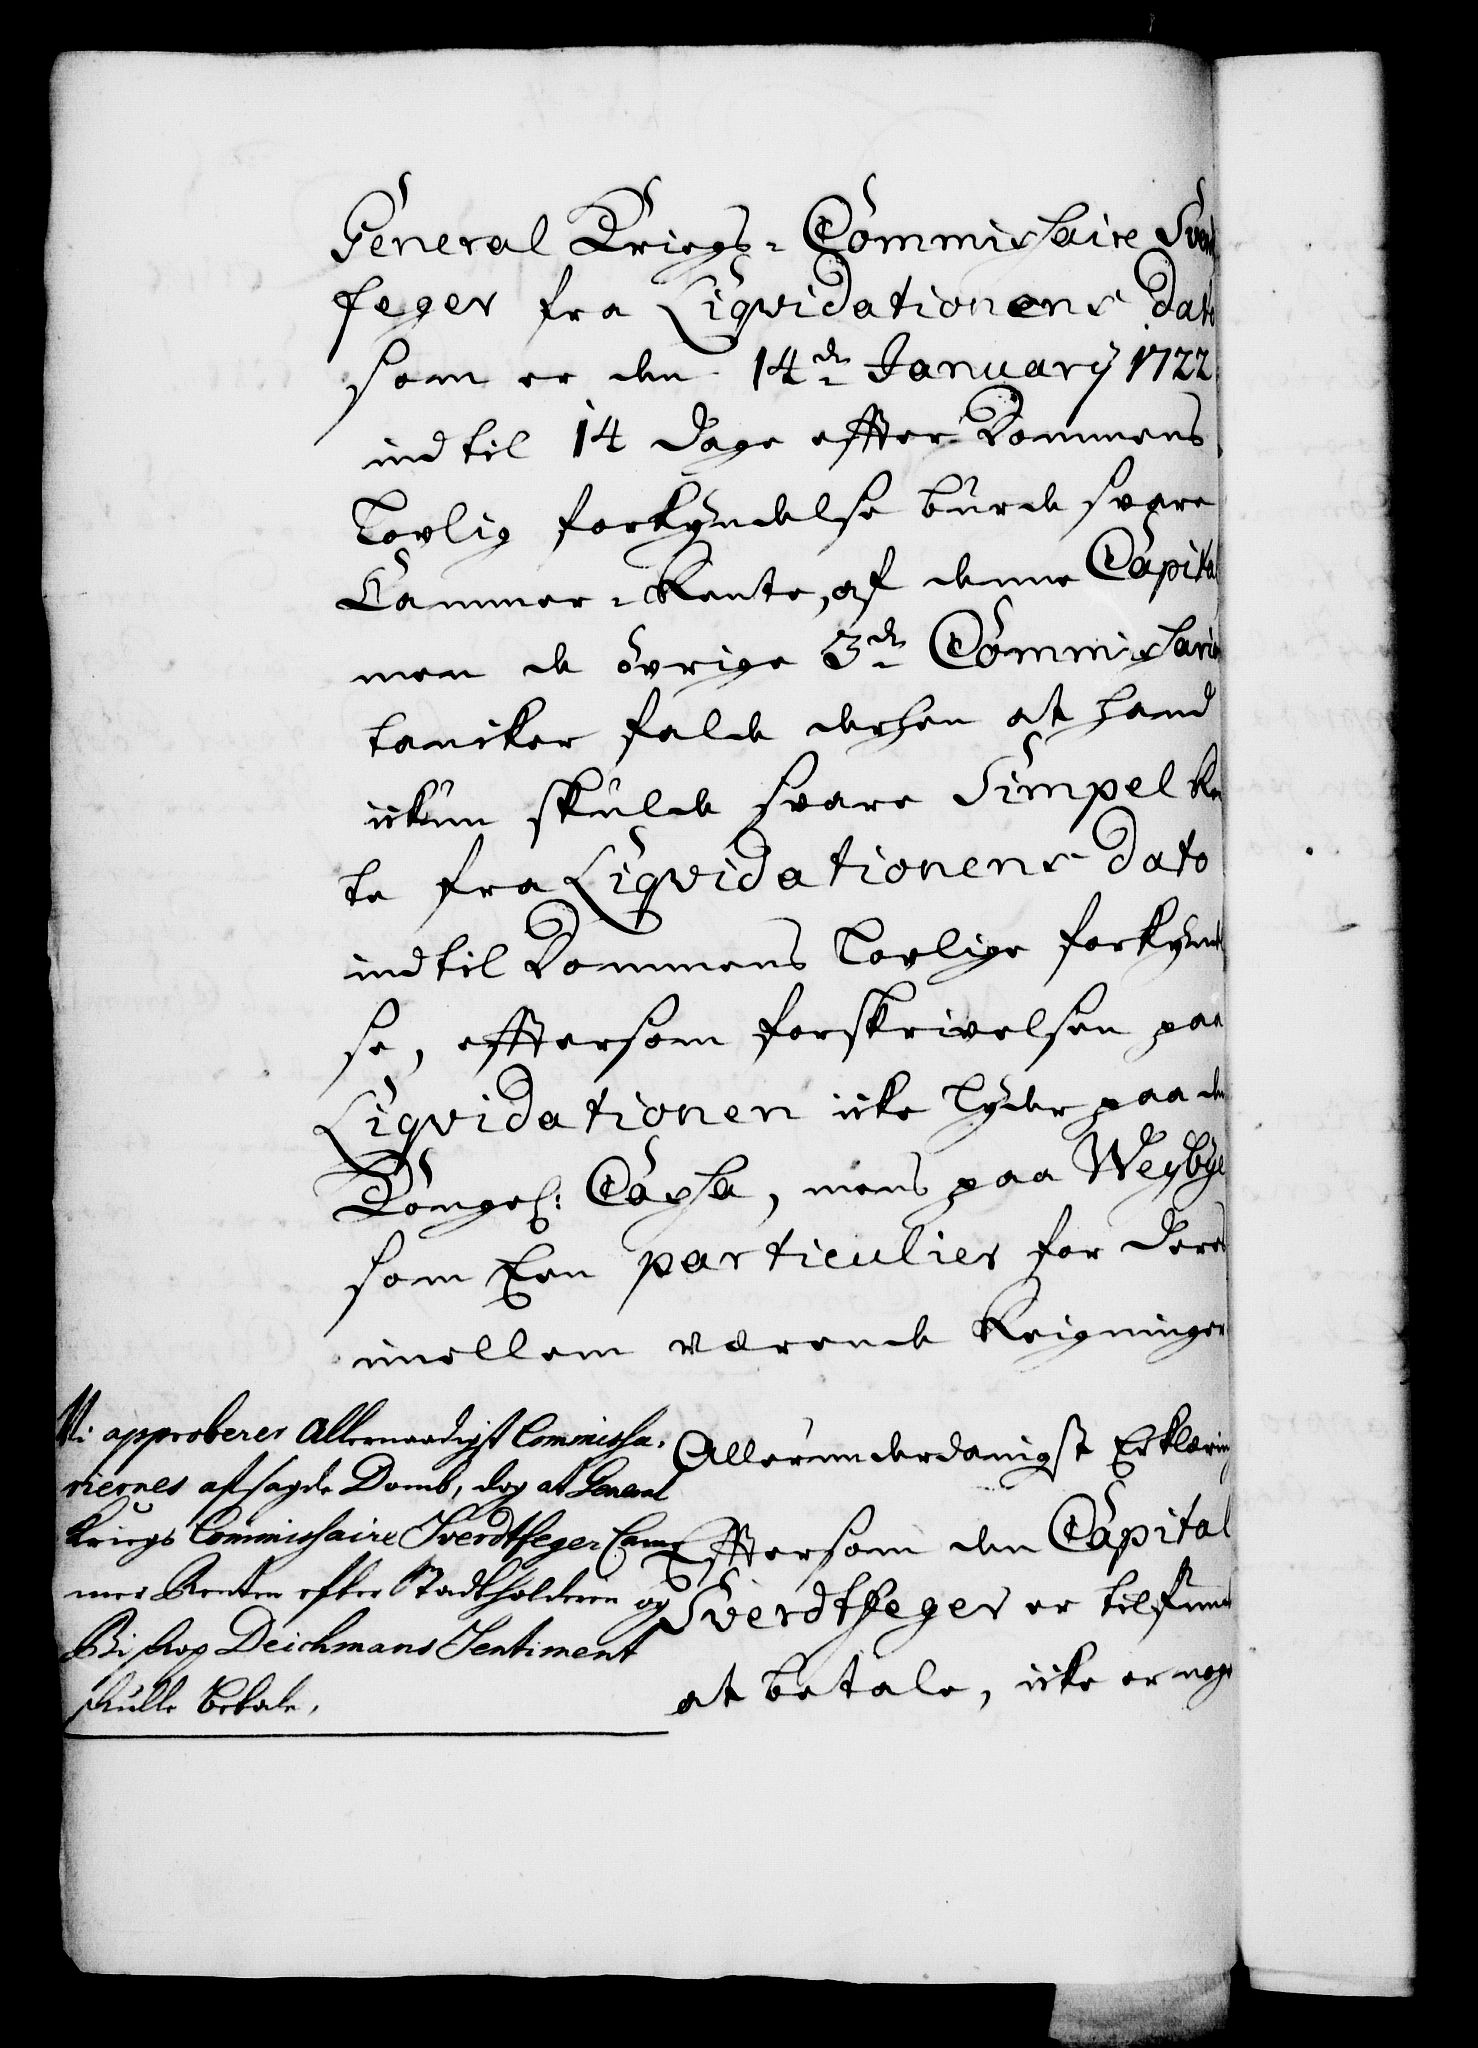 General Kriegs-Commissaire Sverd
feger fra Liqvidationens Dato
som er den 14de January 1722
indtil 14 dage effter Dommens
Lovlig forkyndelse burde svare
Cammer-Rente, af denne Capital
men de övrige 3de Commissarier
tancker falde derhen at hand
ickun skulde svare Simpel Ren
te fra Liqvidationens Dato
indtil Dommens Lovlige forkyndel
se, efftersom forskrivelsen paa
Liqvidationen icke lyder paa den
Kongel: Cassa, mens paa Weybye
som Een particulier for deres
imellem værende Reigninger
Allerunderdanigst Erklæring
Efftersom den Capital
Sverdtfeger er tilfunden
at betale, icke er noge
Vi approberer Allernaadigst Commissa-
riernes afsagde Domb, dog at General
Krigs Commissaire Sverdtfeger Cam
mer Renten efter Stadtholderen og
Biskop Deichmans Sentiment
skulle betale.